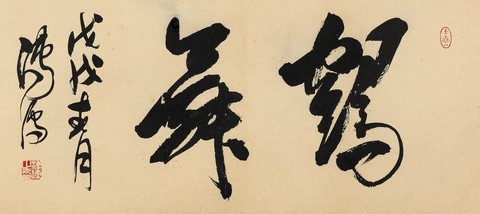 鶴舞
戊戌春月